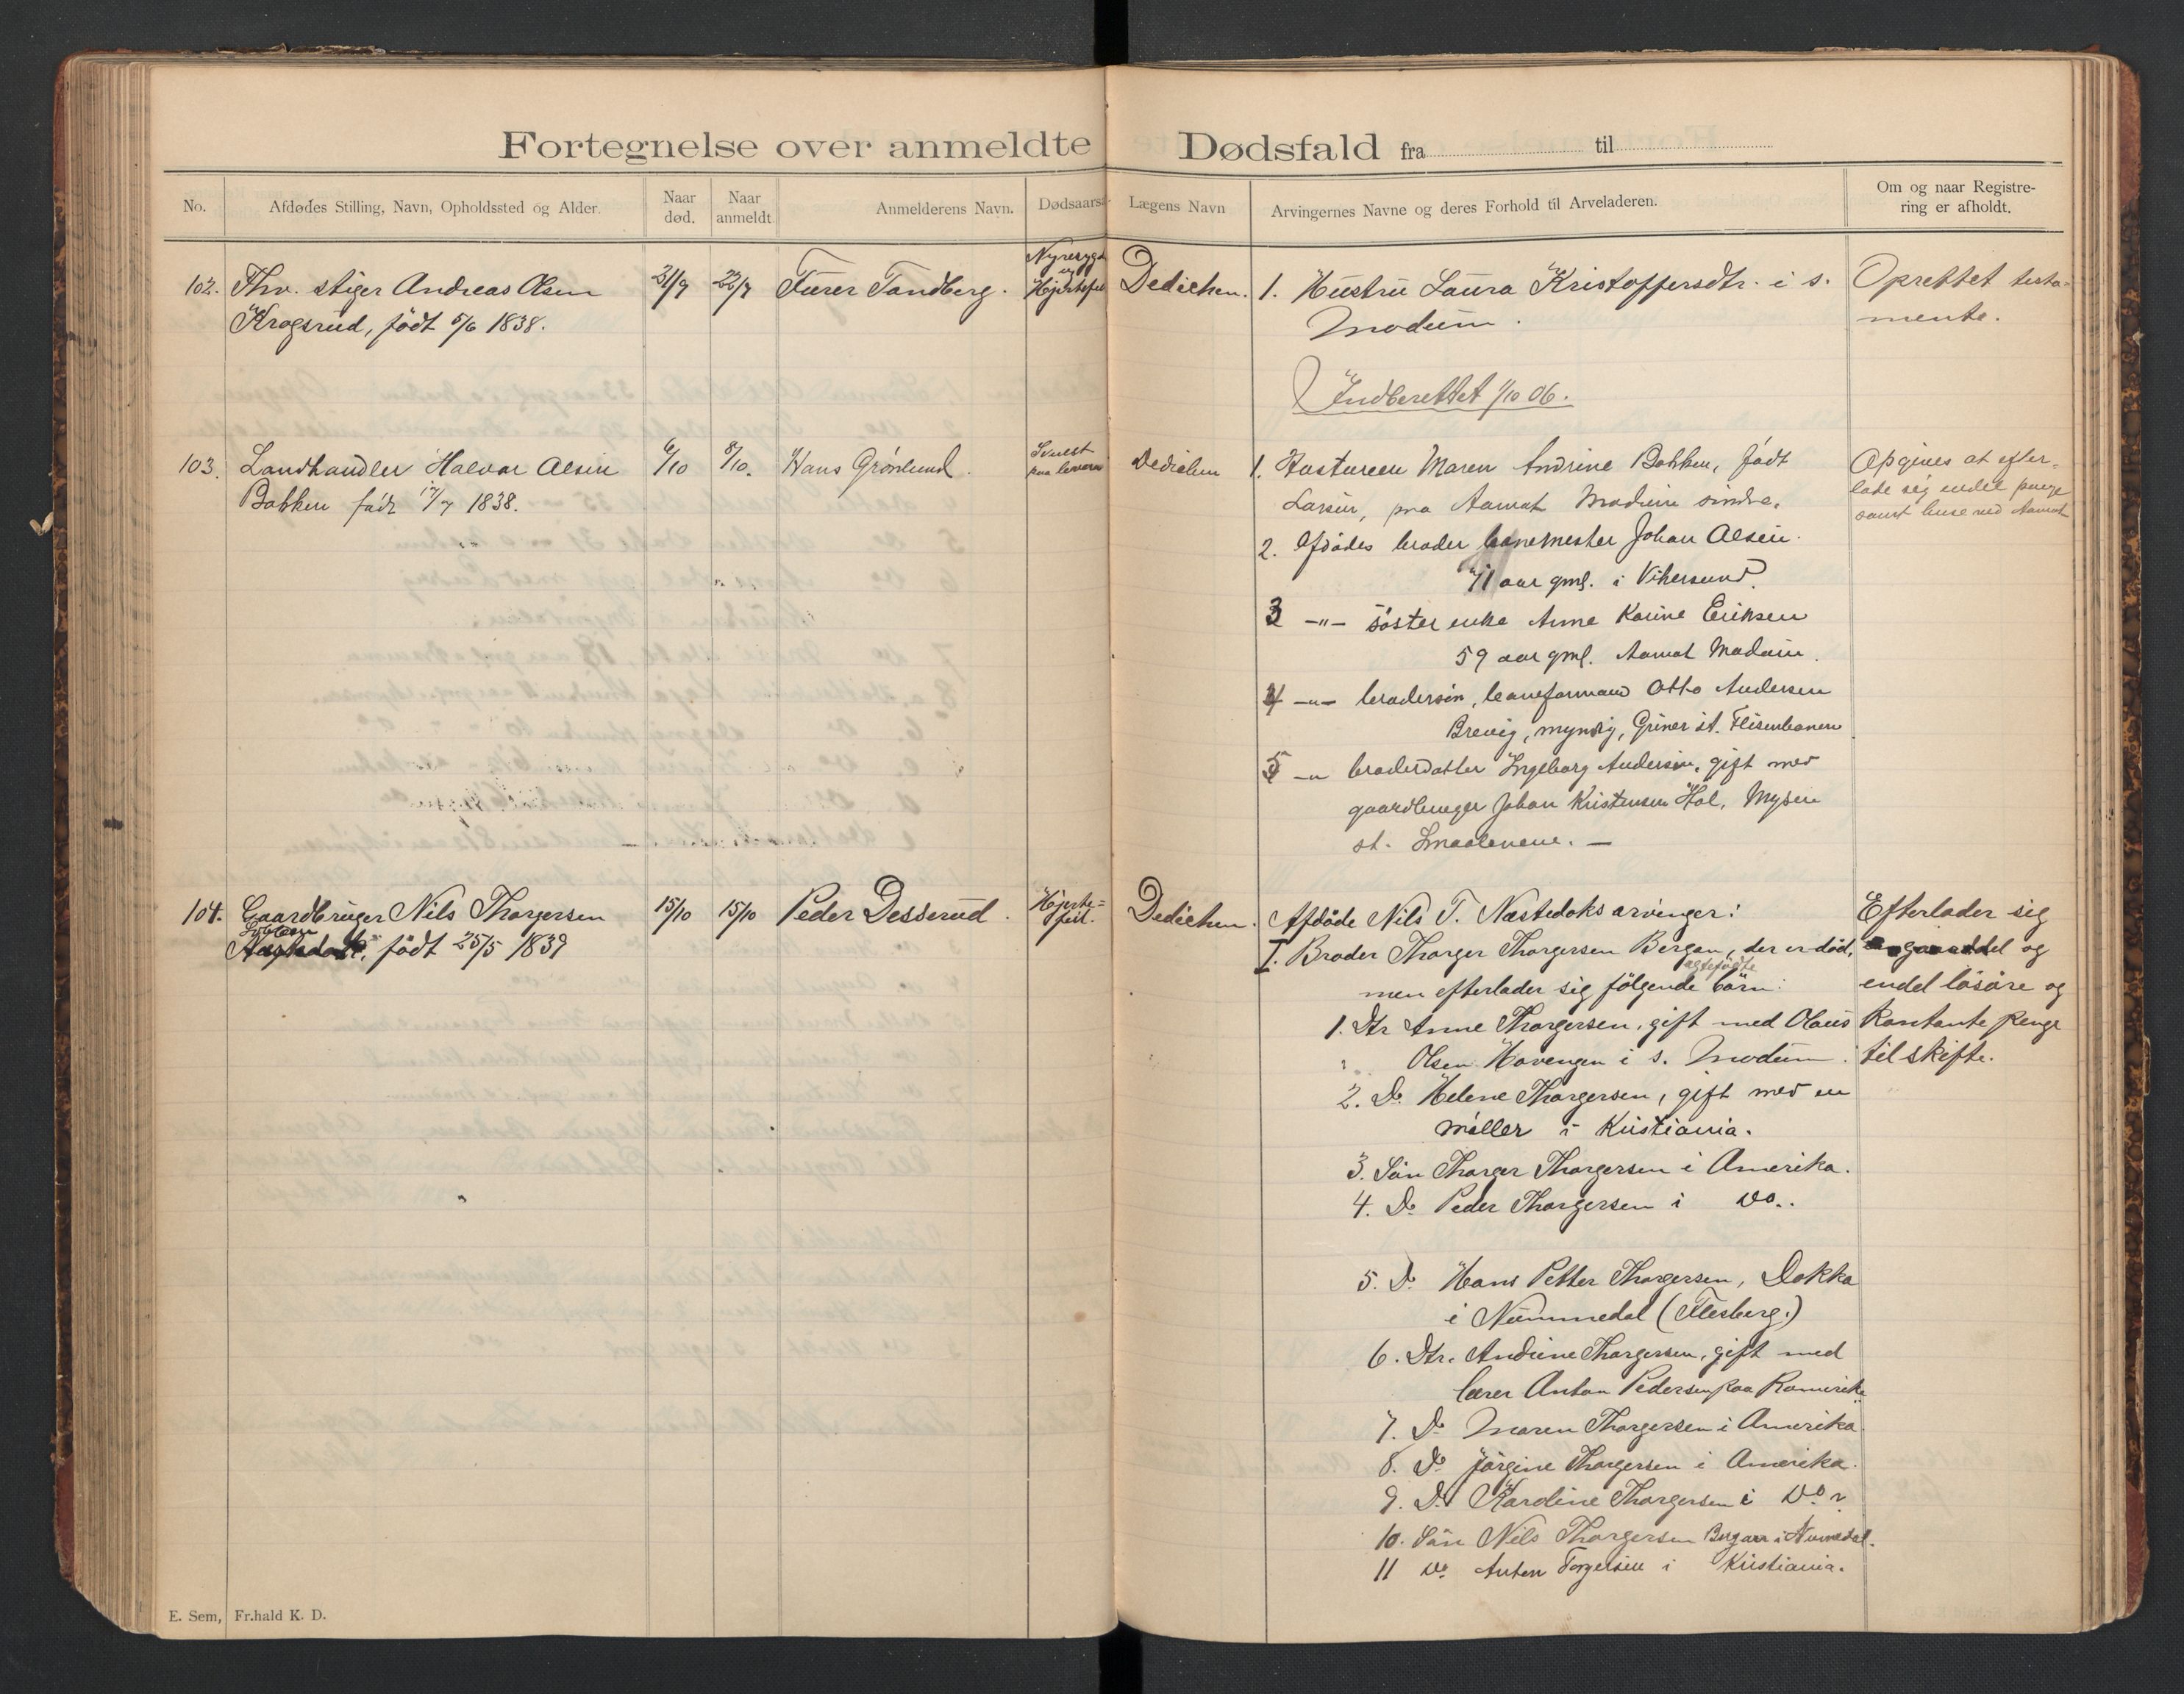 Fortegnelse over anmeldte Dødsfald fra til
No. Afdødes Stilling, Navn, Opholdssted og Alder. Naar død. Naar anmeldt Anmelderens Navn. Dødsaarsa Lægens Navn Arvingernes Navne og deres Forhold til Arveladeren. Om og naar Registrering er afholdt.
102. Fhv. stiger Andreas Olsen 21/9 22/9 Furer Tandberg. Nyresyge og Hjertefeil Dedichen. 1. Hustru Laura Kristoffersdtr. i s. Oprettet testa-
Krogsrud, født 5/6 1838. Modum. mente.
Indberettet 1/10 06.
103. Landhandler Halvor Olsen 6/10 8/10. Hans Grønlund. Svulst paa leveren Dedichen 1. Hustruen Maren Andrine Bakken, født Opgives at efter-
Bakken født 17/7 1838. Larsen, pra Aamot Modum søndre. lade sig endel penge
samt huse ved Aamot
2. Afdødes broder banemester Johan Olsen.
71 aar gml. i Vikersund.
3 -"- søster enke Anne Karine Eriksen
59 aar gml. Aamot Modum.
4 -"- brodersøn, baneformand Otto Andersen
Brevig, myndig, Griner st. Flisenbanen
5 -" broderdatter Ingeborg Andersen, gift med
gaardbruger Johan Kristensen Hol, Mysen
st. Smaalenene. —
104. Gaardbruger Nils Thorgersen 15/10 15/10 Peder Desserud. Hjerte-feil. Dedichen. Afdøde Nils T. Næstedoks arvinger: Efterlader sig
Næstedok, født 25/5 1839 I. Broder Thorger Thorgersen Bergan, der er død, en gaarddel og
ægtefødte
men efterlader sig følgende børn: endel løsøre og
1. Dtr Anne Thorgersen, gift med Olaus kontante penge
Olsen Hovengen i s. Modum. til skifte.
2. Do Helene Thorgersen, gift med en
møller i Kristiania.
3. Søn Thorger Thorgersen i Amerika.
4. Do Peder Thorgersen i Do..
5. Do Hans Petter Thorgersen, Dokka
i Nummedal (Flesberg.)
6. Dtr. Andrine Thorgersen, gift med
lærer Anton Pedersen paa Romerike
7. Do Maren Thorgersen i Amerika.
8. Do Jørgine Thorgersen i Amerika.
9. Do Karoline Thorgersen i Do
10. Søn Nils Thorgersen Bergan i Numedal.
11 Do Anton Torgersen i Kristiania.
E. Sem, Fr.hald K. D.